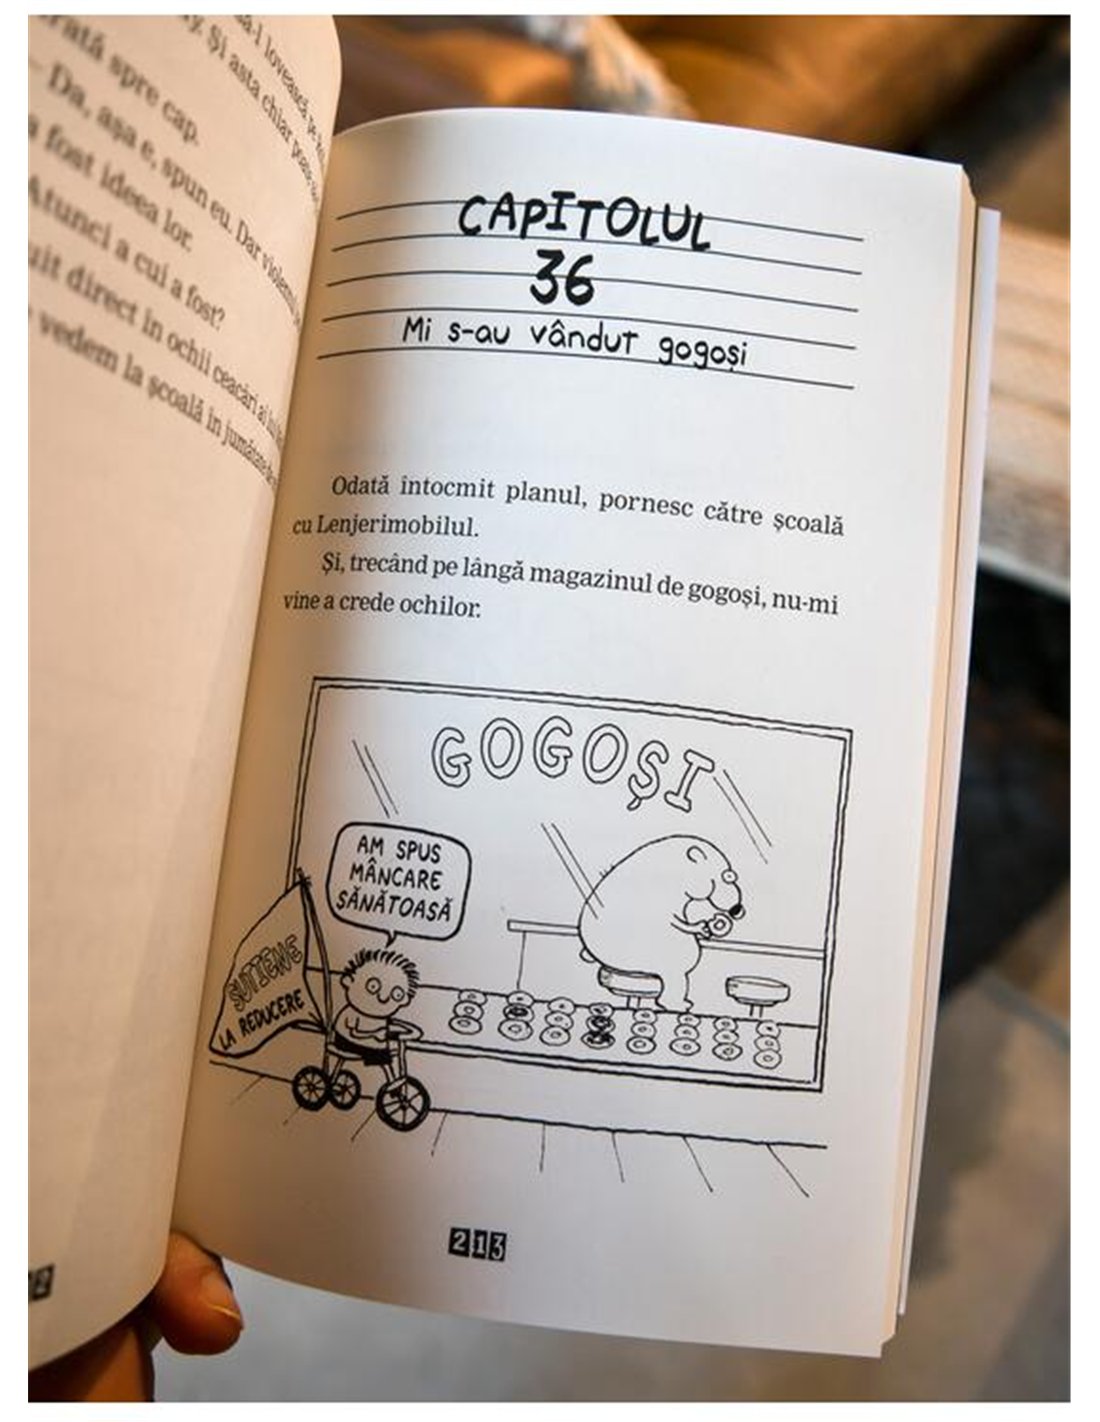 rată spre cap.
– Da, așa e, spun eu. Dar
fost ideea lor.
Atunci a cui a fost?
direct în ochii ceacâri ai
vedem la școală în jumătate de
lovească pe
Și asta chiar
CAPITOLUL
36
Mi s-au vândut gogoși
Odată întocmit planul, pornesc către școală
cu Lenjerimobilul.
Și, trecând pe lângă magazinul de gogoși, nu-mi
vine a crede ochilor.
GOGOȘI
AM SPUS
MÂNCARE
SĂNĂTOASĂ
SUTIENE
LA REDUCERE
213